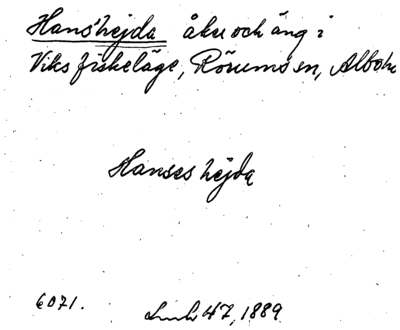 Hans'hejda åker och äng i
Viks fiskeläge, Rörums sn, Albo h
Hanses hejda
6071. 47, 1889